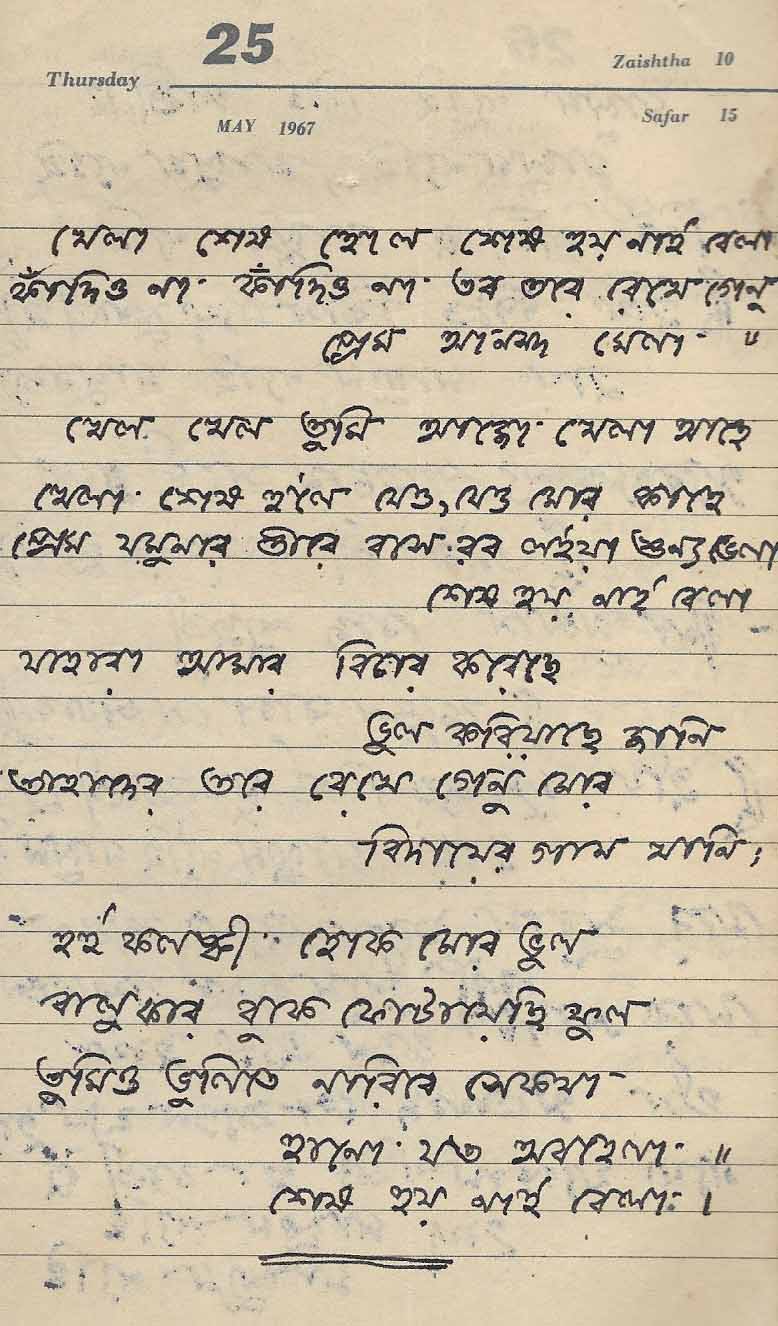 25
Zaishtha 10
Thursday
MAY 1967
Safar 15
খেলা শেষ হোল শেষ হয় নাই বেলা
কাঁদিও না কাঁদিও না তব তরে রেখে গেনু
প্রেম আনন্দ মেলা ॥
খেল খেল তুমি আজো খেলা আছে
খেলা শেষ হলে যেও, যেও মোর কাছে
প্রেম যমুনার তীরে বসে রব লইয়া শুন্য ভেলা
শেষ হয় নাই বেলা
যাহারা আমার বিচার করেছে
ভুল করিয়াছে জানি
তাহাদের তরে রেখে গেনু মোর
বিদায়ের গান খানি;
হই কলঙ্কী হোক মোর ভুল
বালুকার বুকে ফোটায়েছি ফুল
তুমিও ভুলিতে নারিবে সেকথা
হানো যত অবহেলা ॥
শেষ হয় নাই বেলা ।